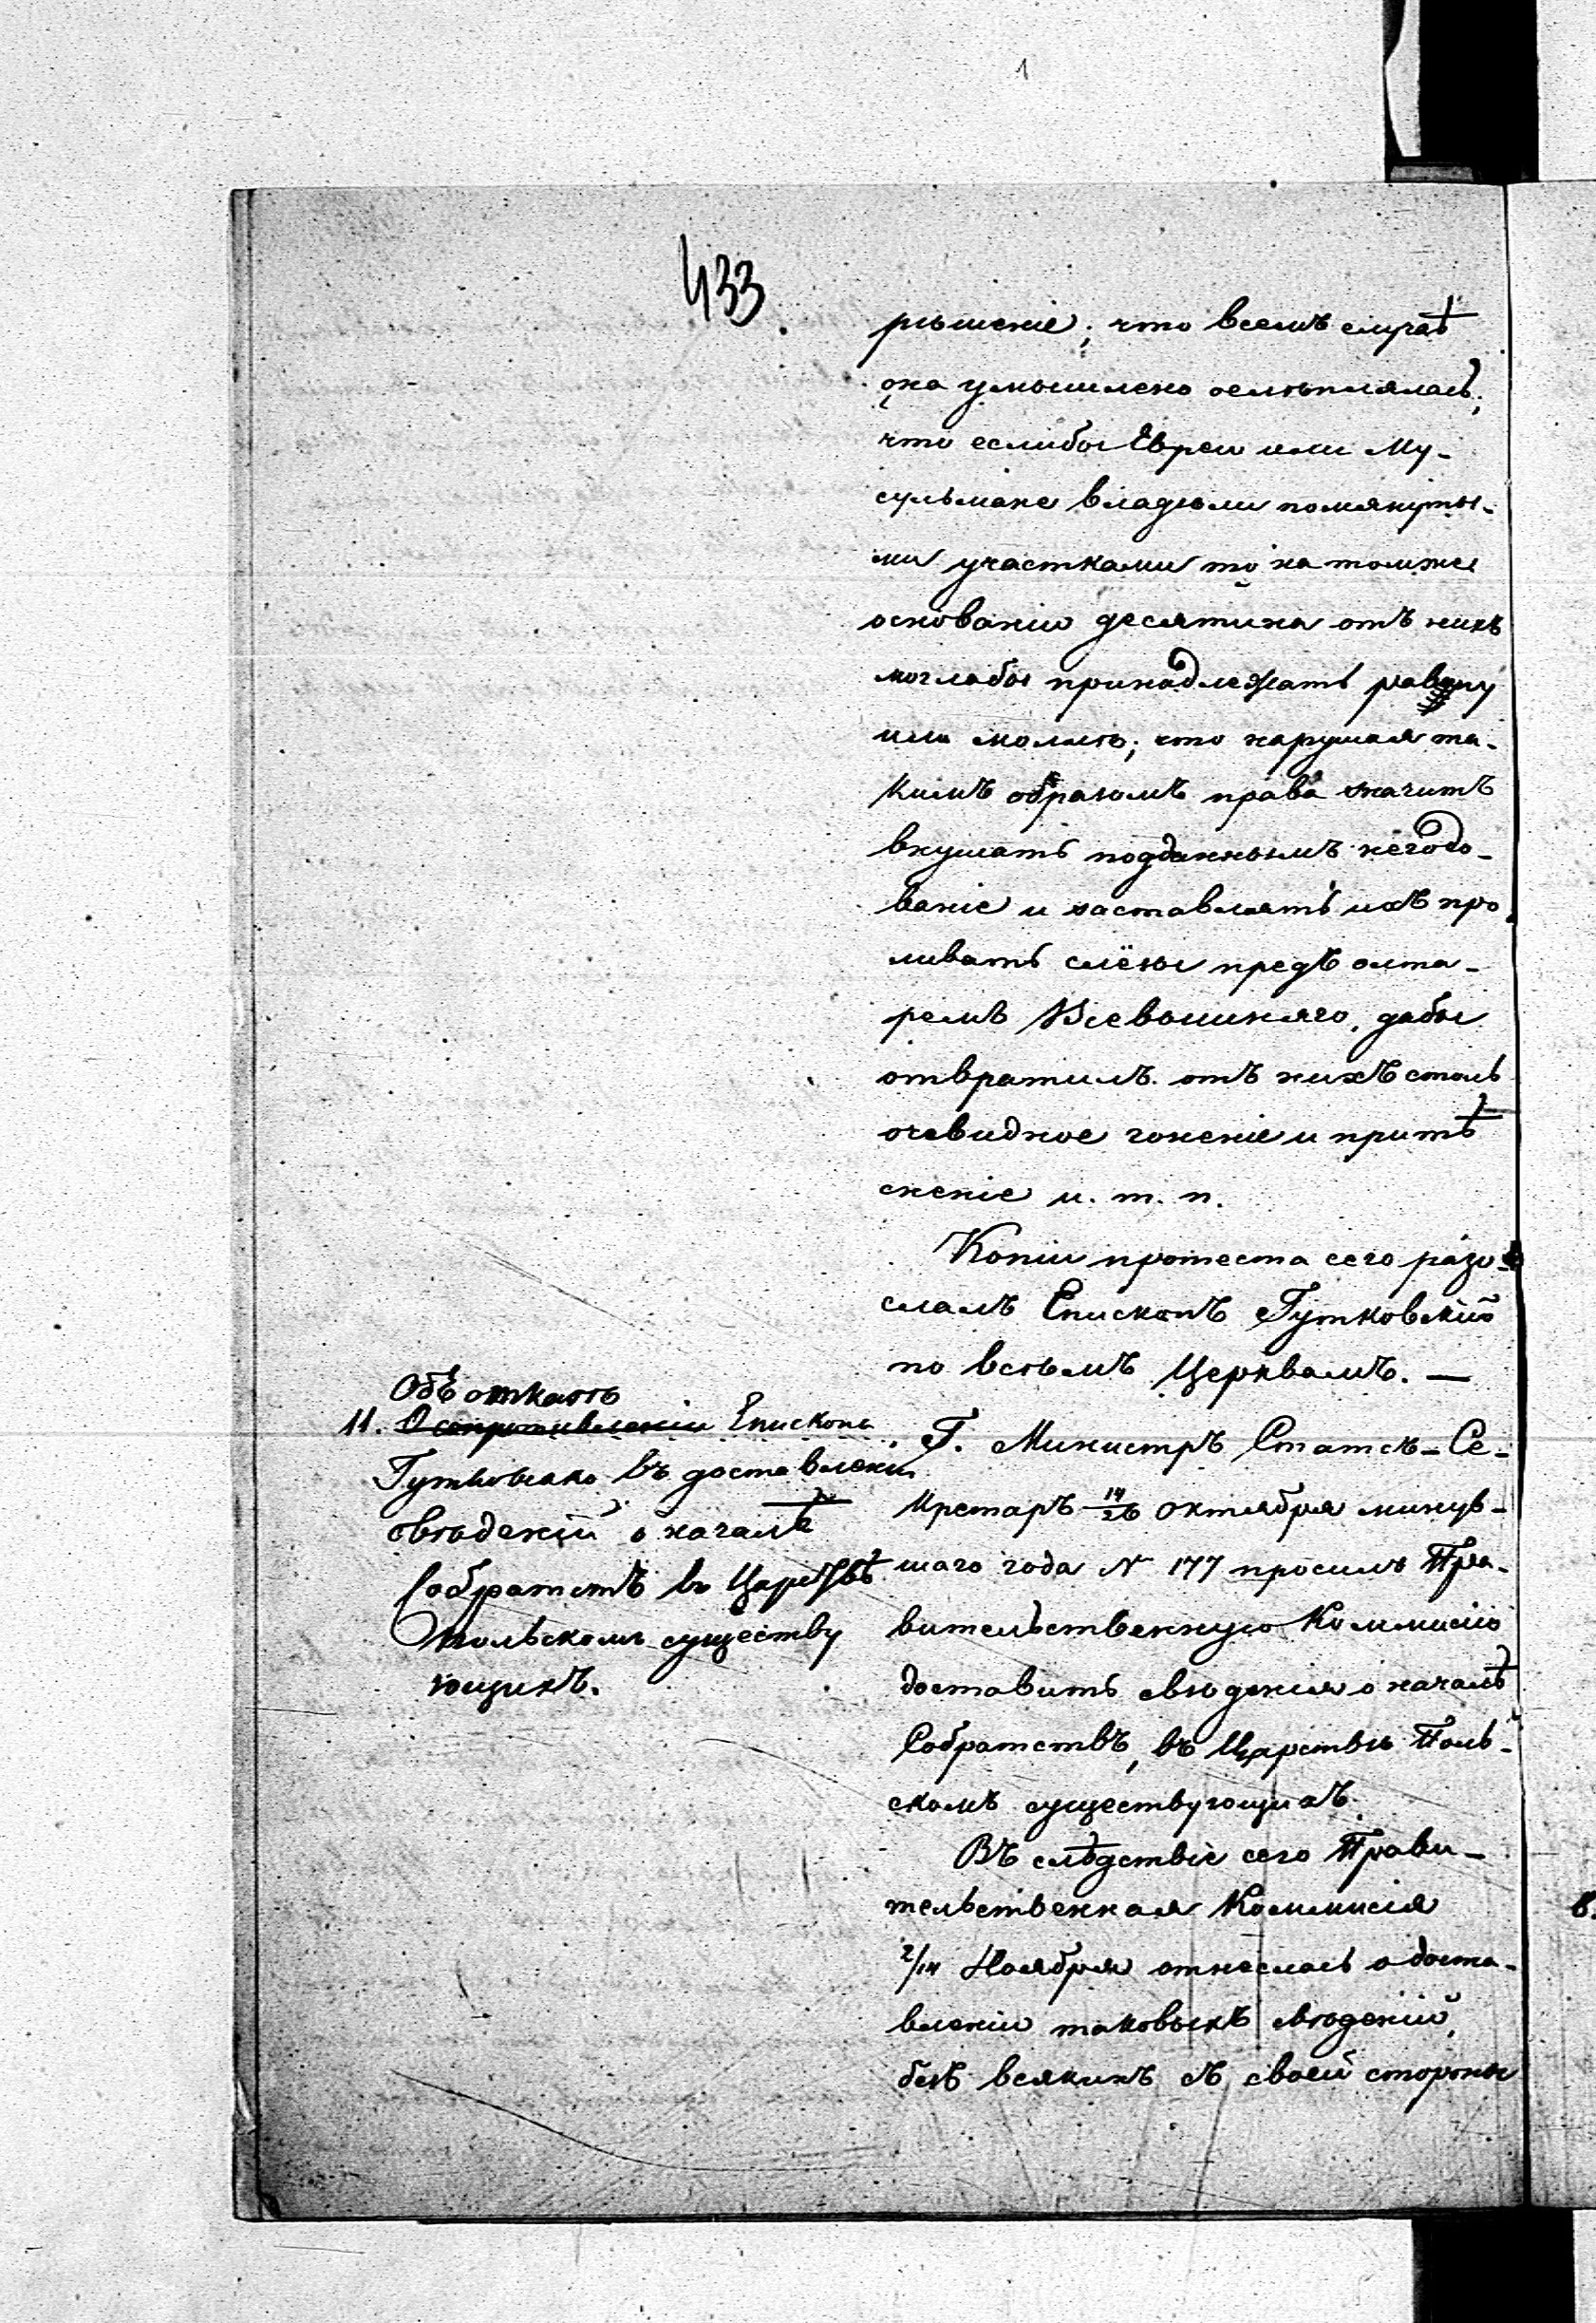 1
433.
рѣшеніе; что всемъ случаѣ
она умышлено ослѣплялась;
что еслибы Евреи или Му-
сульмане владѣли помянуты-
ми участками то на томже
основаніи десятина отъ нихъ
моглабы принадлежать равину
или моллѣ; что нарушая та-
кимъ образомъ права значитъ
внушать подданнымъ негодо-
ваніе и заставлять ихъ про
ливать слёзы предъ олта-
ремъ Всевышняго, дабы
отвратилъ отъ нихъ столь
очевидное гоненіе и притѣ
сненіе и. т. п.
Копіи протеста сего разо-
слалъ Епископъ Гутковскій
по всѣмъ Церквамъ. —
Объ отказѣ
11. О сопротивленіи Епископа
Гутковскаго въ доставленіи
свѣдѣній о началѣ
Собратствъ въ Царствѣ
Польскомъ существу
ющихъ.
Г. Министръ Статсъ-Се-
кретаръ 14/26 Октября минув-
шаго года № 177 просилъ Пра-
вительственную Коммисію
доставить свѣдѣнія о началѣ
Собратствъ, въ Царствѣ Поль-
скомъ существующихъ.
Въ слѣдствіе сего Прави-
тельственная Коммисія
2/14 Ноября отнеслась о доста-
вленіи таковыхъ свѣдѣній,
безъ всякихъ съ своей стороны